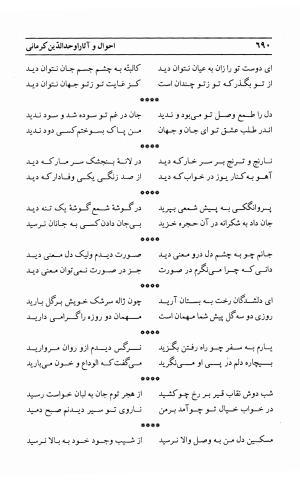 ۶۹۰ احوال و آثار اوحدالدّین کرمانی
ای دوست تو را زان به عیان نتوان دید کالبتّه به چشم جسم جان نتوان دید
از تو بگذر که تو ز تو چندان است کز غایت تو ز تو جهان نتوان دید
****
دل را طمع وصل تو می‌بود و ندید جان در غم تو سوده شد و سود ندید
اندر طلب عشق تو ای جان و جهان من پاک بسوختم کسی دود ندید
****
نارنج و ترنج بر سر خار که دید در لانهٔ بنجشک سر مار که دید
آهو به کنار یوز در خواب که دید از صد زنگی یکی وفادار که دید
****
پروانگکی به پیش شمعی بپرید در گوشهٔ شمع گوشهٔ یک تنه دید
جان داد به شکرانه در آن حجره خزید بی‌جان دادن کسی به جانان نرسید
****
جانم چو به چشم دل درو معنی دید صورت دیدم ولیک دل معنی دید
دانی که چرا می‌نگرم در صورت جز در صورت نمی‌توان معنی دید
****
ای دلشدگان رخت به بستان آرید چون ژاله سرشک خویش بر گل بارید
روزی دو سه گل پیش شما مهمان است مهمان دو روزه را گرامی دارید
****
یارم به سفر چو راه رفتن بگزید نرگس دیدم ازو روان مروارید
بیچاره دلم در پی او می‌نگرید می‌گفت که الوداع و خون می‌بارید
****
شب دوش نقاب قیر بر رخ چو کشید از هجر توم جان به لبان خواست رسید
در خواب خیال تو چو آمد برمن ناروی تو سیر دیدنم صبح دمید
****
مسکین دل من به وصل والا نرسید از شیب وجود خود به بالا نرسید